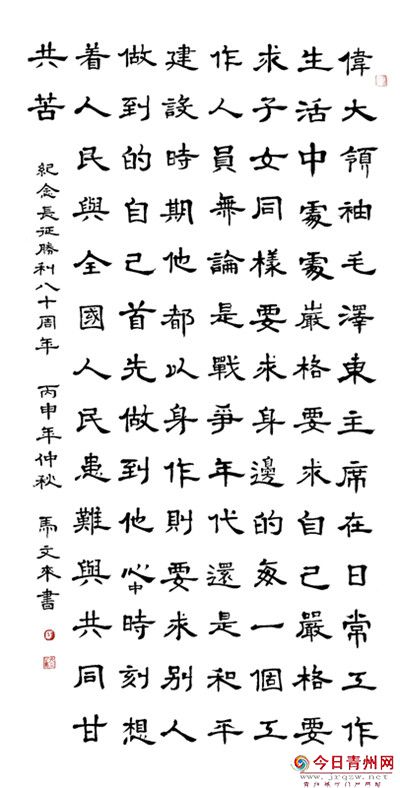 偉大領袖毛澤東主席在日常工作
生活中處處巌格要求自己嚴格要
求子女同樣要求身邊的每一個工
作人員無論是戰爭年代還是和平
建設時期他都以身作則要求別人
做到的自己首先做到他心中時刻想
着人民與全國人民患難與共同甘
共苦
紀念長征勝利八十周年 丙申年仲秋 馬文來書
今日青州网
www.jrqzw.net